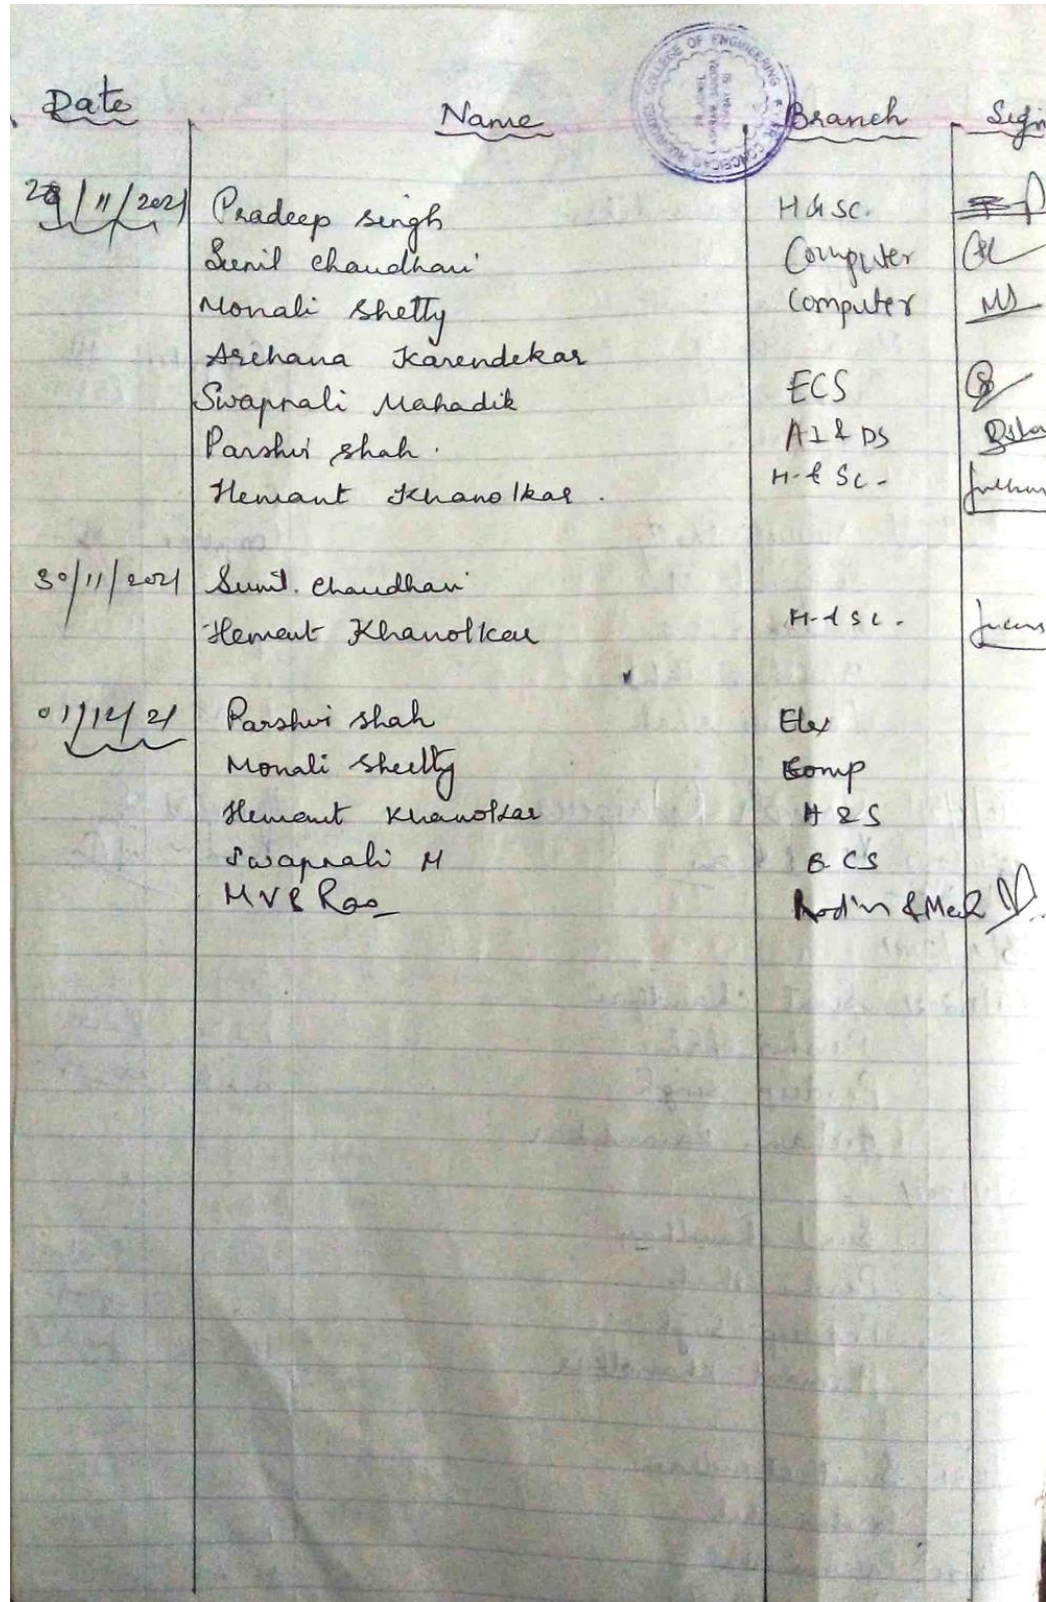 Date Name Branch Sign
29/11/2021 Pradeep Singh H & SC.
Sunil Chaudhari Computer
Monali Shetty Computer MS
Archana Karendekar
Swapnali Mahadik ECS
Parshvi Shah. AI & DS
Hemant Khanolkar. H & Sc.
30/11/2021 Sunil. Chaudhari
Hemant Khanolkar H & SC.
01/12/21 Parshvi Shah
Monali Shetty Comp
Hemant Khanolkar H & S
Swapnali M ECS
MVB Rao
COLLEGE OF ENGINEERING